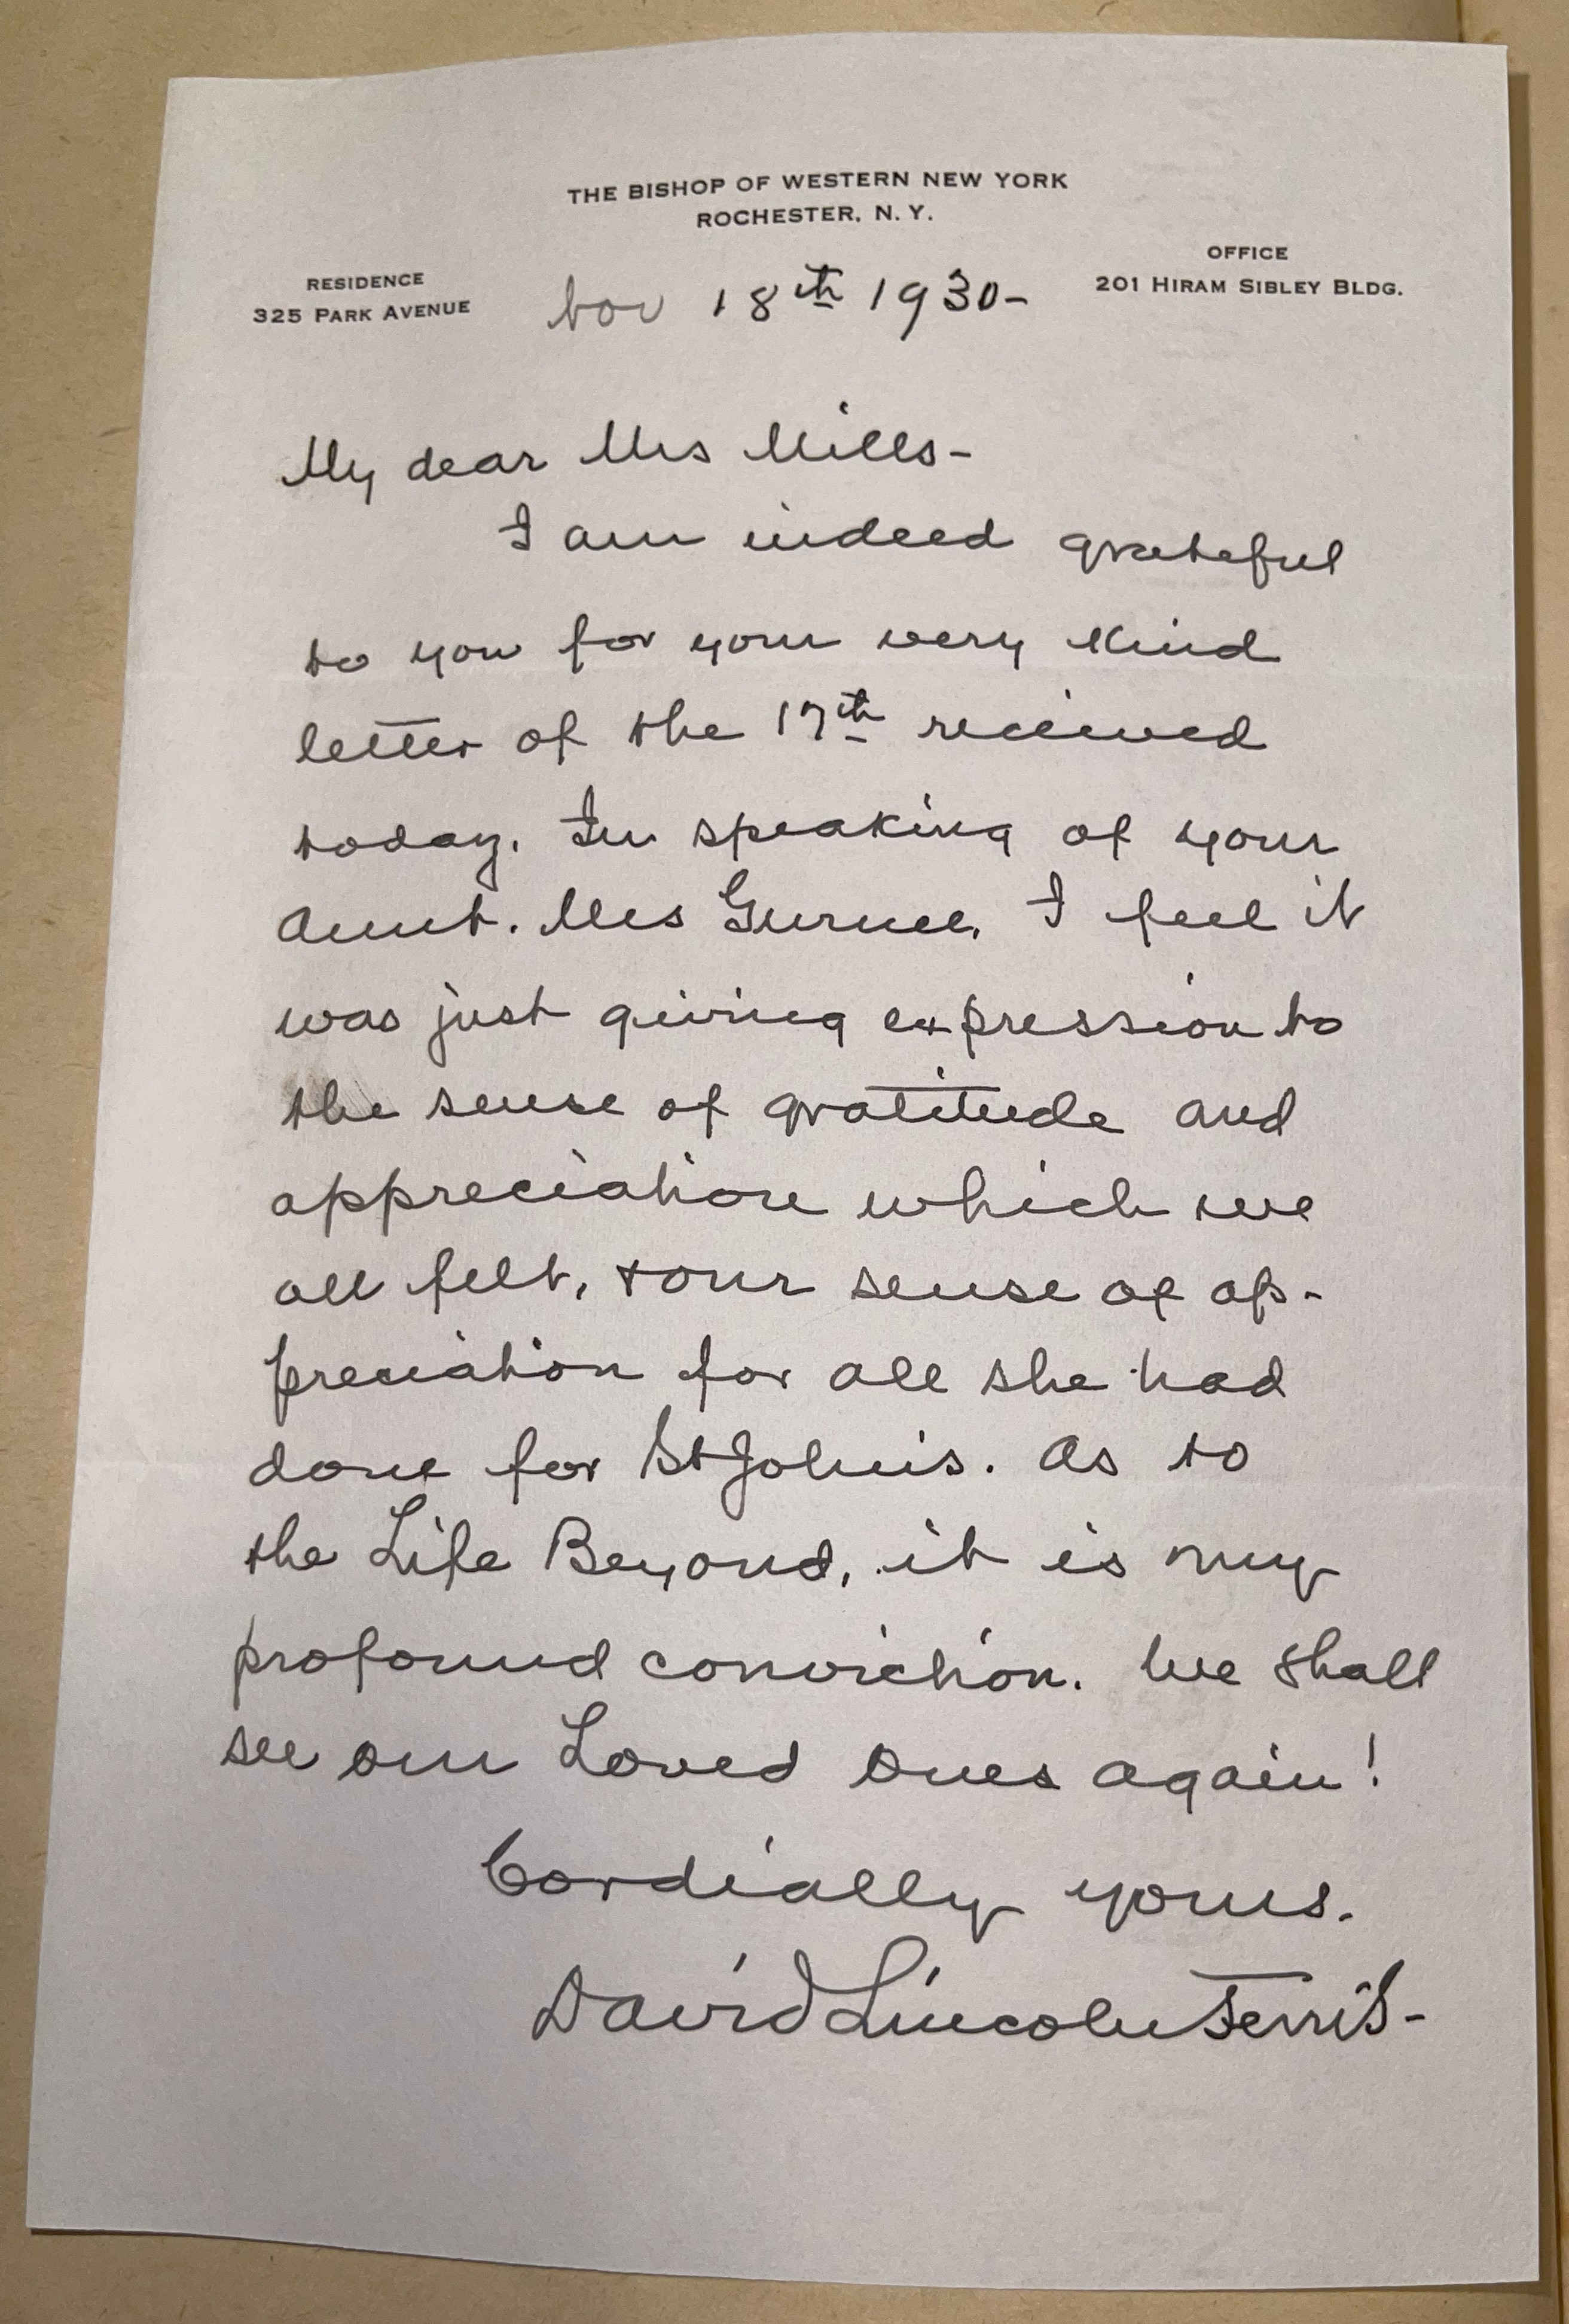 THE BISHOP OF WESTERN NEW YORK
ROCHESTER, N. Y.
RESIDENCE
325 PARK AVENUE
OFFICE
201 HIRAM SIBLEY BLDG.
Nov 18th 1930-
My dear Mrs Mills-
I am indeed grateful
to you for your very kind
letter of the 17th received
today. In speaking of your
Aunt. Mrs Gurnee, I feel it
was just giving expression to
the sense of gratitude and
appreciation which we
all felt, + our sense of ap-
preciation for all she had
done for St John's. As to
the Life Beyond, it is my
profound conviction. We shall
see our Loved Ones again!
Cordially yours.
David Lincoln Ferris-